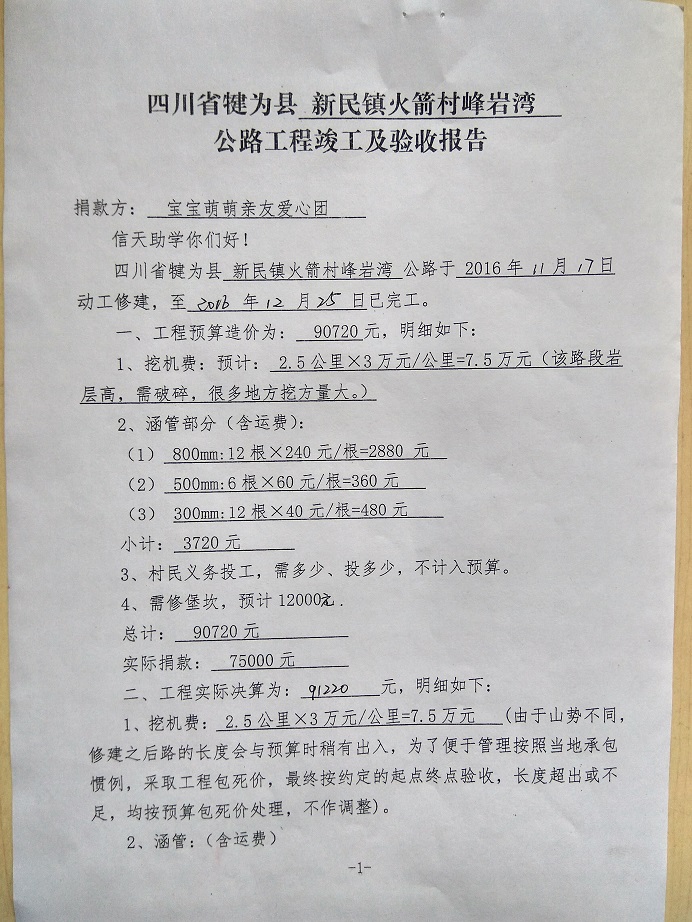 四川省犍为县 新民镇火箭村峰岩湾
公路工程竣工及验收报告
捐款方： 宝宝萌萌亲友爱心团
信天助学你们好！
四川省犍为县 新民镇火箭村峰岩湾 公路于 2016 年 11 月 17 日
动工修建，至 2016 年 12 月 25 日已完工。
一、工程预算造价为： 90720 元，明细如下：
1、挖机费：预计： 2.5 公里×3 万元/公里=7.5 万元（该路段岩
层高，需破碎，很多地方挖方量大。）
2、涵管部分（含运费）：
（1） 800mm:12 根×240 元/根=2880 元
（2） 500mm:6 根×60 元/根=360 元
（3） 300mm:12 根×40 元/根=480 元
小计： 3720 元
3、村民义务投工，需多少、投多少，不计入预算。
4、需修堡坎，预计 12000元.
总计： 90720 元
实际捐款： 75000 元
二、工程实际决算为： 91220 元，明细如下：
1、挖机费： 2.5 公里×3 万元/公里=7.5 万元 （由于山势不同，
修建之后路的长度会与预算时稍有出入，为了便于管理按照当地承包
惯例，采取工程包死价，最终按约定的起点终点验收，长度超出或不
足，均按预算包死价处理，不作调整）。
2、涵管：（含运费）
-1-